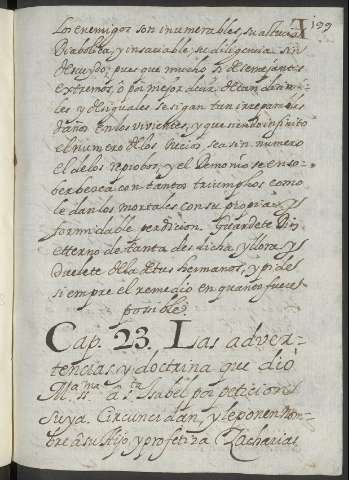 199
Los enemigos son innumerables, su astucia
Diabolica, y insaciable; su diligencia sin
descuydo: pues que mucho si de semejantes
extremos, ô por mejor decir, de tan
les y desiguales se sigan tan irreparables
daños en los vivientes, y que siendo infinito
el numero de los necios, sea sin numero
el de los reprobos; y el Demonio se enso-
berbezca con tantos triumphos como
le dan los mortales con su propia, y
formidable perdicion. Guardete Dios
eterno de tanta desdicha y llora, y
duelete de la de tus hermanos, y pide
siempre el remedio en quanto fuere
possible.
Cap. 23. Las adver-
tencias, y doctrina que diò
M.ª ma. ss. a s.ta Isabel por peticion
suya. Circuncidan, y le ponen nom-
bre â su Hijo, y profetiza Zacharias